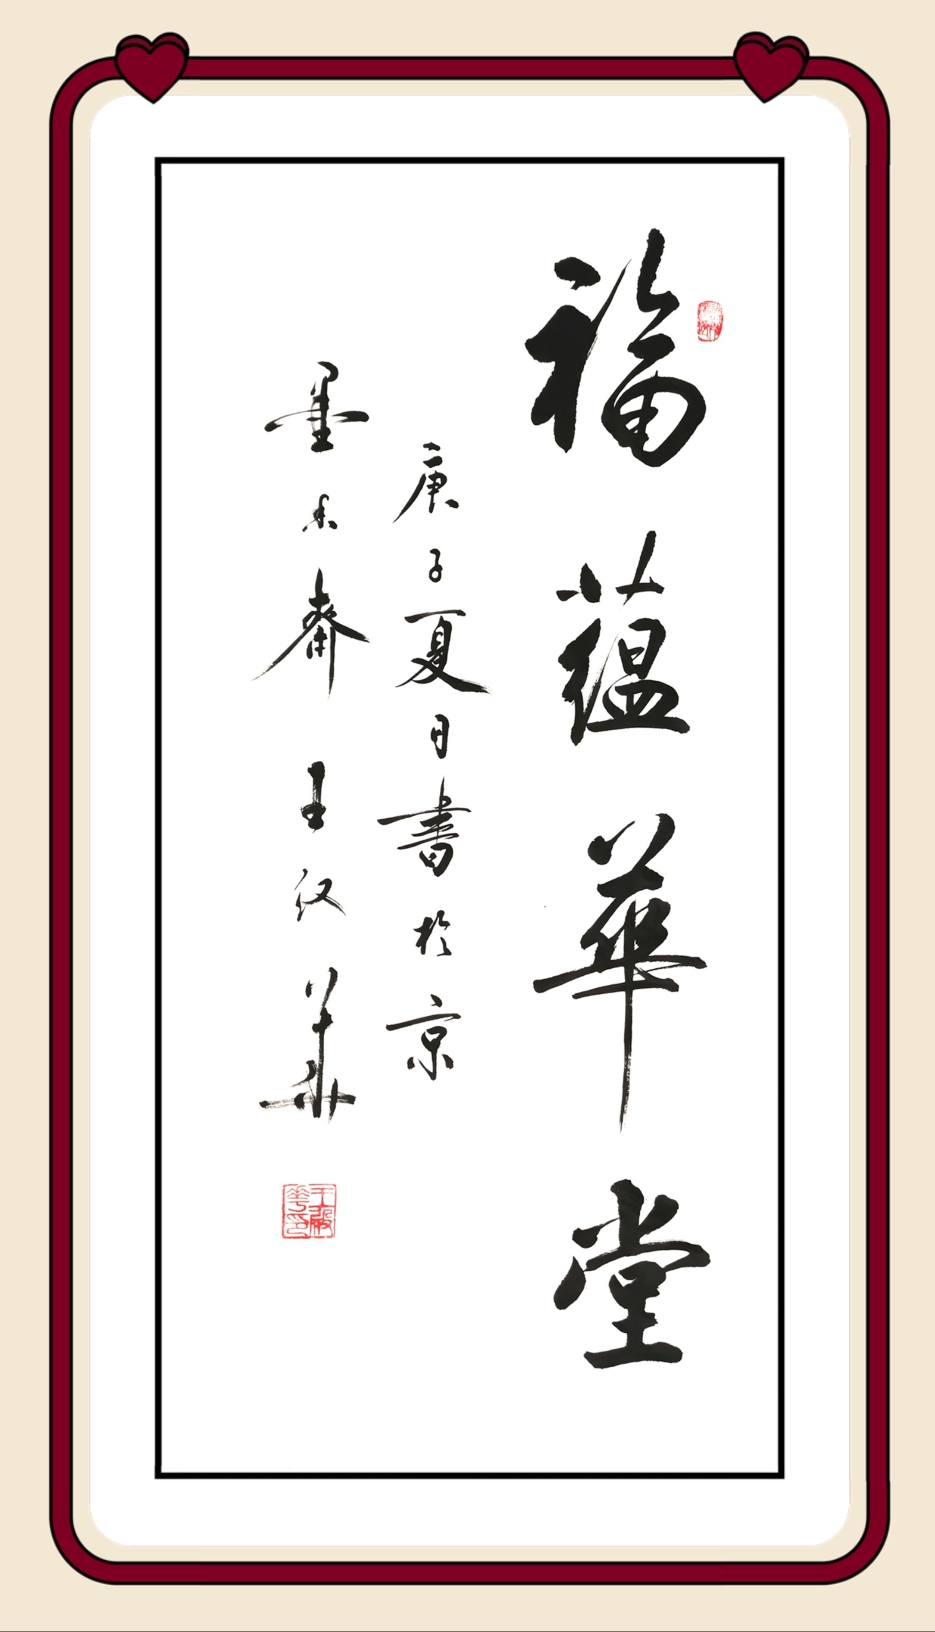 福蕴華堂
庚子夏日書於京
墨香齋 王汉華